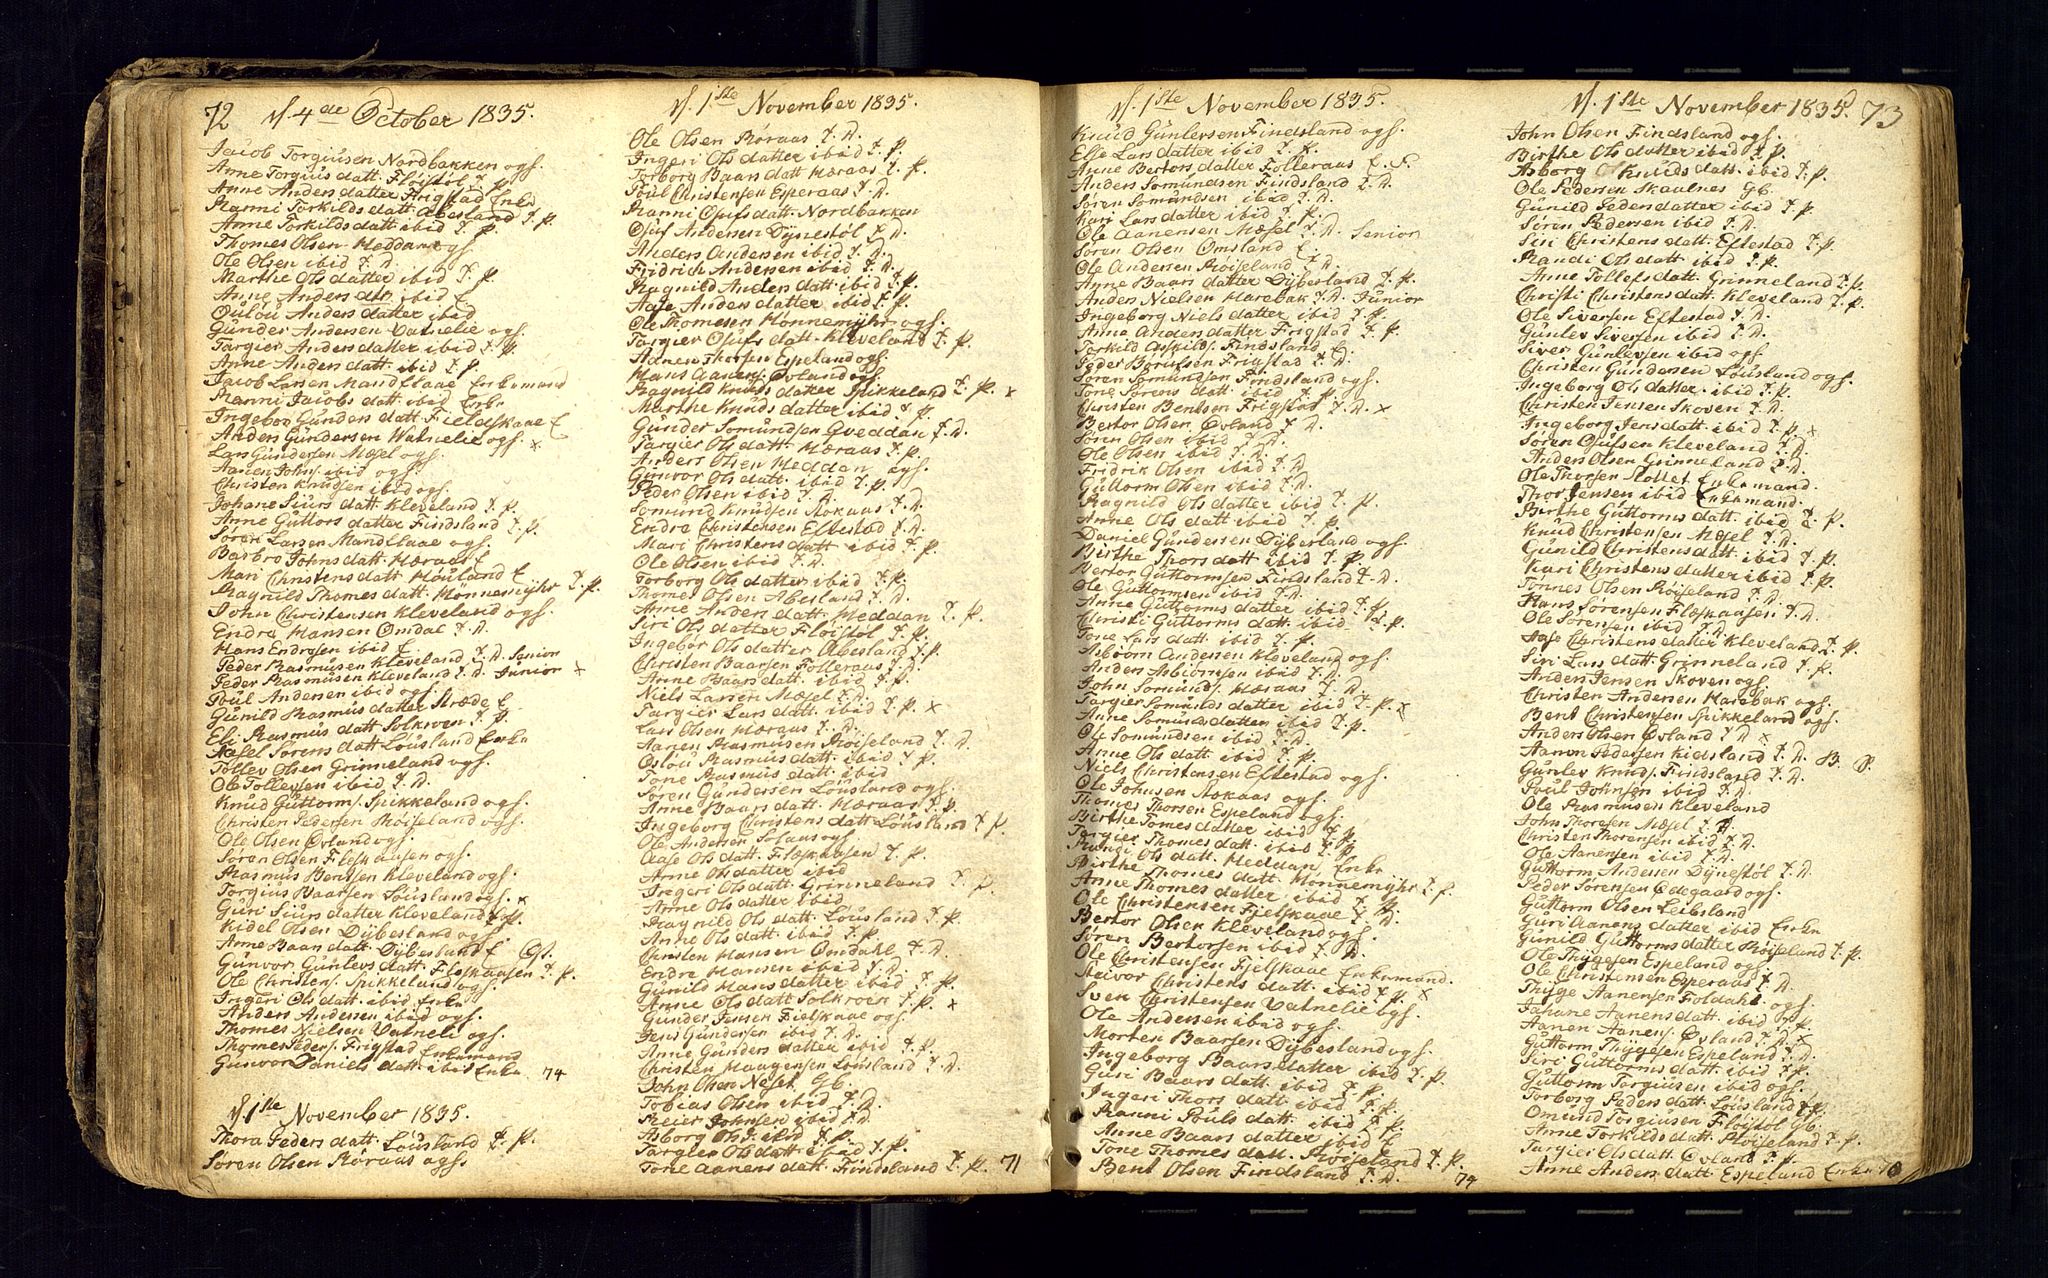 72 d. 4de October 1835.
Jacob Torgiusen Nordbakken ogh.
Anne Torgius datt Fløistøl t. p.
Anne Anders datter Frigstad Enke
Ranni Torkilds datt. Abesland t. p.
Anne Torkilds datt ibid t. p.
Thomes Olsen Heddan ogh.
Ole Olsen ibid t. D.
Marthe Ols datter ibid t. p.
Anne Anders dtr. ibid E
Oulou Anders datter ibid
Gunder Andersen Vatnelie ogh.
Targier Anders datter ibid t. p.
Anne Anders datt. ibid t. p.
Jacob Larsen Mandflaae Enkemand
Ranni Jacobs datt ibid Enke
Ingebor Gunders datt Fieldskaae E
Anders Gundersen Watnelie ogh. x
Lars Gundersen Mæsel ogh.
Aanen Johns. ibid ogh.
Christen Knudsen ibid ogh.
Johane Siurs datt Kleveland t. p.
Anne Guttors datter Findsland t. p.
Søren Larsen Mandflaae ogh.
Barbro Johns datt. Høraas E
Mari Christens datt Houland E
Ragnild Thomes datt. Hønnemyhr t. p.
John Christensen Kleveland ogh.
Endre Hansen Omdal t. D.
Hans Endresen ibid E
Peder Rasmusen Kleveland t. D. Senior
Peder Rasmusen Kleveland t. D. Junior x
Poul Andersen ibid ogh.
Gunild Rasmus datter Stræde E
Eli Rasmus datt Solkroen t. p.
Assel Sørens datt Løusland Enke
Tollev Olsen Grinneland ogh.
Ole Tollevsen ibid t. D.
Knud Guttorms. Spikkeland ogh.
Christen Pedersen Røiseland ogh.
Ole Olsen Øvland ogh.
Søren Olsen Fleskaasen ogh.
Rasmus Bentsen Kleveland ogh.
Torgius Baarsen Løusland ogh. x
Guri Siurs datter Kleveland t. p.
Kidel Olsen Dybesland ogh.
Anne Baars datt. Dybesland E Cst.
Gunvor Gunlevs datt. Fleskaasen t. p.
Ole Christens. Spikkeland ogh.
Ingeri Ols datt. ibid Enke
Anders Andersen ibid ogh.
Thomes Nielsen Vatneli ogh.
Thomes Peders. Frigstad Enkemand
Gunvor Daniels datt ibid Enke 74
d. 1ste November 1835.
Thora Peders datt. Løusland t. p.
Søren Olsen Røraas ogh.
d. 1ste November 1835.
Ole Olsen Røraas t. D.
Ingeri Ols datter ibid t. p.
Torborg Baars datt Høraas t. p.
Poul Christensen Esperaas t. D.
Ranni Osufs datt. Nordbakken
Osuf Andersen Dynestøl t. D.
Anders Andersen ibid t. D.
Fridrich Andersen ibid t. D.
Ragnild Anders datt. ibid t. p.
Aase Anders datter ibid t. p.
Ole Thomesen Hønnemyhr ogh.
Targier Osufs datt. Kleveland t. p.
Aanen Thorsen Espeland ogh.
Hans Aanens. Øvland ogh.
Ragnild Knuds datter Spikkeland t. p. x
Marthe Knuds datter ibid t. p.
Gunder Somundsen Gveddan t. D.
Targier Ols datt. Høraas t. p.
Anders Olsen Heddan ogh.
Gunvor Ols datt. ibid t. p.
Peder Olsen ibid t. D.
Somund Knudsen Aokaas t. D.
Endre Christensen Eftestad t. D.
Mari Christens datt ibid t. p.
Ole Olsen ibid t. D.
Torborg Ols datter ibid t. p.
Thomes Olsen Abesland t. D.
Anne Anders datt. Heddan t. p.
Siri Ols datter Fløistøl t. p.
Ingebor Ols datter Abesland t. p.
Christen Baarsen Folleraas t. D.
Anne Baars datt. ibid t. p.
Niels Larsen Mæsel t. D.
Targier Lars datt. ibid t. p. x
Lars Olsen Høraas t. D.
Aanen Rasmusen Røiseland t. D.
Oslou Rasmus datt. ibid t. p.
Tone Rasmus datt. ibid
Søren Gundersen Løusland ogh.
Anne Baars datt. Høraas t. p.
Ingeborg Christens datt Løusland t. p.
Ole Andersen Solaas ogh.
Aase Ols datt. Fleskaasen t. p.
Anne Ols datter ibid
Ingeri Ols datt. Grinneland t. p.
Anne Ols datter ibid
Ragnild Ols datt. Løusland t. p.
Anne Ols datt ibid t. p.
Christen Hansen Omdahl t. D.
Endre Hansen ibid t. D.
Gunild Hans datter ibid t. p.
Anne Ols datt Solkroen t. p. x
Gunder Jensen Fielskaae ogh.
Jens Gundersen ibid t. D.
Anne Gunders datter ibid t. p.
Christen Maagensen Løusland t. D.
John Olsen Neset Gb.
Tobias Olsen ibid t. D.
Reier Johnsen ibid t. D.
Asborg Ols d. ibid t. p.
Targier Ols datt ibid t. p.
Tone Aanens datt. Findsland t. p. 71
d. 1ste November 1835.
Knud Gunlevsen Findsland ogh.
Else Lars datter ibid t. K.
Anne Bertors datter Folleraas E. F.
Anders Somundsen Findsland t. D.
Søren Somundsen ibid t. D.
Kari Lars datter ibid t. p.
Ole Aanensen Mæsel t. D. Senior
Søren Olsen Omsland E.
Ole Andersen Røiseland t. D.
Anne Baars datter Dybesland t. p.
Anders Nielsen Harebak t. D. Junior
Ingeborg Niels datter ibid t. p.
Anna Anders datter Frigstad t. p.
Torkild Askilds. Findsland E.
Peder Børufsen Frigstad t. D.
Søren Somundsen Findsland ogh.
Tone Sørens datt. ibid t. p.
Christen Bentsen Frigstad t. D. x
Bertor Olsen Øvland t. D.
Søren Olsen ibid t. D.
Ole Olsen ibid t. D.
Fridrik Olsen ibid t. D.
Guttorm Olsen ibid t. D.
Ragnild Ols datter ibid t. p.
Anne Ols datt ibid t. p.
Daniel Gundersen Dyberland ogh.
Birthe Thors datt ibid t. p.
Bertor Guttormsen Findsland t. D.
Ole Guttormsen ibid t. D.
Anne Guttorms datter ibid t. p.
Christi Guttorms datt. ibid t. p.
Tone Lars datt. ibid t. p.
Asbiørn Andersen Kleveland ogh.
Anders Asbiørnsen ibid t. D.
John Somunds. Høraas t. D.
Targier Somunds datter ibid t. p. x
Anne Somunds datter ibid t. p.
Ole Somundsen ibid t. D.
Anne Ols datt ibid t. p.
Niels Christensen Eftestad ogh.
Ole Johnsen Aokaas ogh.
Thomes Thorsen Espeland ogh.
Birthe Tomes datter ibid t. p.
Targier Thomes datt. ibid t. p.
Randi Ols datt. Heddan Enke
Birthe Thomes datt. Hønnemyhr t. p.
Anne Thomes datter ibid t. p.
Ole Christensen Fielskaae t. D.
Bertor Olsen Kleveland ogh.
Søren Bertorsen ibid t. D.
Ole Christensen Fielskaae Enkemand.
Reivor Christens datt ibid t. p. x
Sven Christensen Vatnelie ogh.
Ole Andersen ibid ogh.
Morten Baarsen Dybesland ogh.
Ingeborg Baars datter ibid t. p.
Guri Baars datt. ibid t. p.
Ingeri Thors datt ibid t. p.
Ranni Pouls datt. ibid t. p.
Anne Baars datter ibid E
Tone Thomes datt. Røiseland t. p.
Bent Olsen Findsland t. D. 74
d. 1ste November 1835. 73
John Olsen Findsland ogh.
Birthe Ols datter ibid t. p.
Asborg Knuds datt. ibid t. p.
Ole Pedersen Skaulnes Gb.
Gunild Peders datter ibid t. p.
Søren Pedersen ibid t. D.
Siri Christens datt. Eftestad t. p.
Randi Ols datt. ibid t. p.
Anne Tollefs datt. Grinneland t. p.
Christi Christens datt. Kleveland t. p.
Ole Siversen Eftestad t. D.
Gunlev Siversen ibid t. D.
Siver Gunlevsen ibid ogh.
Christen Gundersen Løusland ogh.
Ingeborg Ols datter ibid t. p.
Christen Jensen Skoven t. D.
Ingeborg Jens datt. ibid t. p. x
Søren Osufsen Kleveland t. D.
Anders Olsen Grinneland t. D.
Ole Thorsen Flottet Enkemand.
Thor Jensen ibid Enkemand.
Birthe Guttorms datt. ibid t. p.
Knud Christensen Mæsel t. D.
Gunild Christens datt. ibid t. p.
Kari Christens datter ibid t. p.
Tønnes Olsen Røiseland t. D.
Hans Sørensen Fleskaasen t. D.
Ole Sørensen ibid t. D.
Aase Christens datter Kleveland t. p.
Siri Lars datt. Grinneland t. p.
Anders Jensen Skoven ogh.
Christen Andersen Harebak ogh.
Bent Christensen Spikkeland ogh.
Anders Olsen Øvland t. D. x
Aanen Pedersen Kidsland t. D. B. S.
Gunlev Knuds. Findsland t. D.
Poul Johnsen ibid t. D.
Ole Rasmusen Kleveland
John Thorsen Mæsel t. D.
Christen Thorensen ibid t. D.
Ole Aanensen ibid t. D.
Guttorm Andersen Dynestøl t. D.
Peder Sørensen Ødegaard ogh.
Guttorm Olsen Leibsland
Guri Aanens datter ibid Enke
Gunild Guttorms datter Røiseland t. p.
Ole Thygesen Espeland ogh.
Ole Christensen Esperaas t. D.
Thyge Aanensen Foldahl ogh.
Jahane Aanens datt. ibid t. p.
Aanen Aanens. Øvland t. D. x
Guttorm Thygesen Espeland t. D.
Siri Guttorms datt. ibid t. p.
Guttorm Torgiusen ibid ogh.
Torborg Peders datt. Løusland t. p.
Omund Torgiusen Fløistøl Gb.
Anne Torkilds datt. Røiseland t. p.
Targier Ols datt. Øvland t. p.
Anne Anders datt. Espeland Enke 70